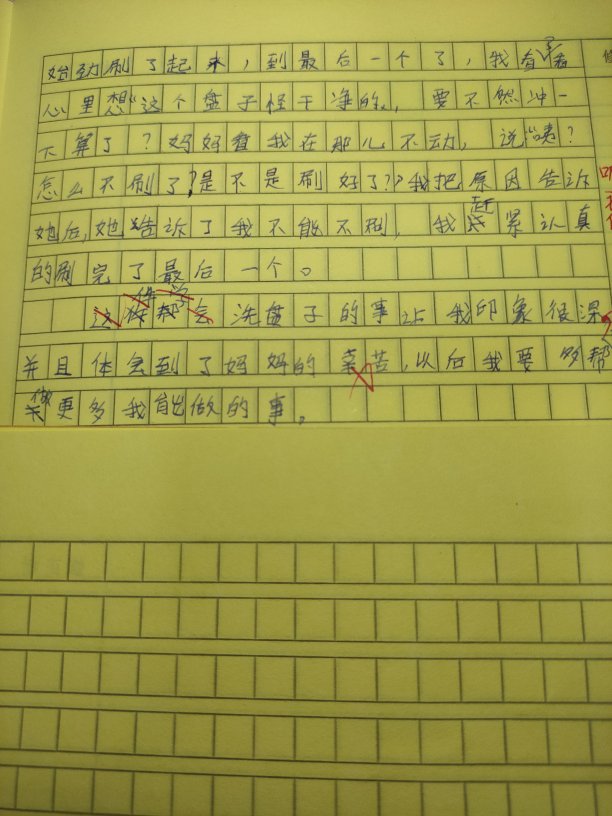 始劲刷了起来，到最后一个了，我看着
心里想“这个盘子怪干净的，要不然冲一
下算了？妈妈看我在那儿不动，说：“咦？
怎么不刷了？是不是刷好了？”我把原因告诉
她后，她告诉了我不能不刷，我赶紧认真
的刷完了最后一个。
这件 学会洗盘子的事让我印象很深
并且体会到了妈妈的辛苦，以后我要多帮
做更多我能做的事。